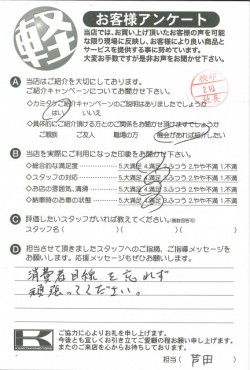 軽
お客様アンケート
当店では、よりお買い上げ頂いたお客様の声を可能
な限り現場に反映し、お客様により良い商品と
サービスを提供する事に努めています。
大変お手数ですが是非お声をお聞かせ下さい。
A 当店はご紹介を大切にしております。
ご紹介キャンペーンについてお聞かせ下さい。
はい いいえ
ご親族 ご友人 職場の方 機会があれば紹介したい
B 当店を実際にご利用になった印象をお聞かせ下さい。
◇総合的な満足度 5.大満足 4.満足 3.ふつう 2.やや不満 1.不満
◇スタッフの対応 5.大満足 4.満足 3.ふつう 2.やや不満 1.不満
◇お店の雰囲気、清掃 5.大満足 4.満足 3.ふつう 2.やや不満 1.不満
◇納車時のお車の状態 5.大満足 4.満足 3.ふつう 2.やや不満 1.不満
C 評価したいスタッフがいれば教えてください。(複数回答可)
スタッフ名( )( )( )
D 担当させて頂きましたスタッフへのご指摘、ご指導メッセージを
お願いします。応援メッセージもぜひお願いします。
消費者目線を忘れず
頑張ってください。
K
ご協力に心よりお礼を申し上げます。
今後とも宜しくお引き立てご愛顧の程お願い申し上げます。
またのご来店を心からお待ちしております。
担当( 芦田 )